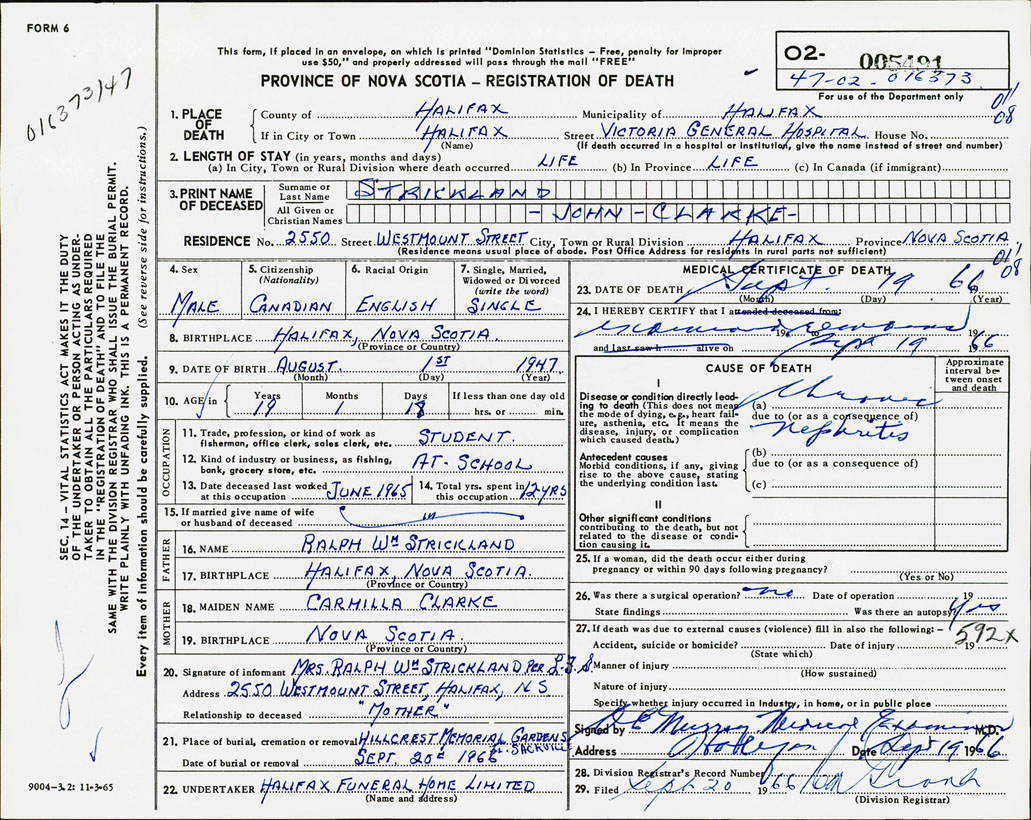 FORM 6
This form, if placed in an envelope, on which is printed "Dominion Statistics – Free, penalty for improper
use $50," and properly addressed will pass through the mail "FREE"
PROVINCE OF NOVA SCOTIA – REGISTRATION OF DEATH
O2- 005491
47-02-016373
For use of the Department only
011
08
016373/47
1. PLACE OF DEATH
County of HALIFAX Municipality of HALIFAX
If in City or Town HALIFAX Street VICTORIA GENERAL HOSPITAL House No.
(Name) (If death occurred in a hospital or institution, give the name instead of street and number)
2. LENGTH OF STAY (in years, months and days)
(a) In City, Town or Rural Division where death occurred LIFE (b) In Province LIFE (c) In Canada (if immigrant)
3. PRINT NAME OF DECEASED
Surname or Last Name STRICKLAND
All Given or Christian Names - JOHN - CLARKE -
RESIDENCE No. 2550 Street WESTMOUNT STREET City, Town or Rural Division HALIFAX Province NOVA SCOTIA
(Residence means usual place of abode. Post Office Address for residents in rural parts not sufficient)
011
08
4. Sex
MALE
5. Citizenship
(Nationality)
CANADIAN
6. Racial Origin
ENGLISH
7. Single, Married,
Widowed or Divorced
(write the word)
SINGLE
8. BIRTHPLACE HALIFAX, NOVA SCOTIA.
(Province or Country)
9. DATE OF BIRTH AUGUST. 1ST 1947
(Month) (Day) (Year)
10. AGE in Years 19 Months 1 Days 18 If less than one day old
hrs. or min.
OCCUPATION
11. Trade, profession, or kind of work as
fisherman, office clerk, sales clerk, etc. STUDENT.
12. Kind of industry or business, as fishing,
bank, grocery store, etc. AT-SCHOOL
13. Date deceased last worked
at this occupation JUNE 1965
14. Total yrs. spent in
this occupation 12 YRS
15. If married give name of wife
or husband of deceased
FATHER
16. NAME RALPH WM STRICKLAND
17. BIRTHPLACE HALIFAX, NOVA SCOTIA.
(Province or Country)
MOTHER
18. MAIDEN NAME CARMILLA CLARKE
19. BIRTHPLACE NOVA SCOTIA.
(Province or Country)
20. Signature of informant MRS. RALPH WM STRICKLAND PER L.F.S.
Address 2550 WESTMOUNT STREET, HALIFAX, N S
Relationship to deceased "MOTHER"
21. Place of burial, cremation or removal HILLCREST MEMORIAL GARDENS
SACKVILLE
Date of burial or removal SEPT. 20th 1966
22. UNDERTAKER HALIFAX FUNERAL HOME LIMITED
(Name and address)
MEDICAL CERTIFICATE OF DEATH
23. DATE OF DEATH Sept. 19 66
(Month) (Day) (Year)
24. I HEREBY CERTIFY that I attended deceased from:
19 to
and last saw h alive on Sept 19 1966
CAUSE OF DEATH
Approximate
interval be-
tween onset
and death
I
Disease or condition directly lead-
ing to death (This does not mean
the mode of dying, e.g., heart fail-
ure, asthenia, etc. It means the
disease, injury, or complication
which caused death.)
(a) Chronic
due to (or as a consequence of)
Nephritis
Antecedent causes
Morbid conditions, if any, giving
rise to the above cause, stating
the underlying condition last.
(b)
due to (or as a consequence of)
(c)
II
Other significant conditions
contributing to the death, but not
related to the disease or condi-
tion causing it.
25. If a woman, did the death occur either during
pregnancy or within 90 days following pregnancy?
(Yes or No)
26. Was there a surgical operation? no Date of operation 19
State findings Was there an autopsy? Yes
27. If death was due to external causes (violence) fill in also the following: – 592X
Accident, suicide or homicide? Date of injury 19
(State which)
Manner of injury
(How sustained)
Nature of injury
Specify whether injury occurred in Industry, in home, or in public place
Signed by D E Murray Medical Examiner M.D.
Address Halifax Date Sept 19 1966
28. Division Registrar's Record Number
29. Filed Sept 20 1966
(Division Registrar)
SEC. 14 – VITAL STATISTICS ACT MAKES IT THE DUTY
OF THE UNDERTAKER OR PERSON ACTING AS UNDER-
TAKER TO OBTAIN ALL THE PARTICULARS REQUIRED
IN THE "REGISTRATION OF DEATH" AND TO FILE THE
SAME WITH THE DIVISION REGISTRAR WHO SHALL ISSUE THE BURIAL PERMIT.
WRITE PLAINLY WITH UNFADING INK. THIS IS A PERMANENT RECORD.
Every item of information should be carefully supplied. (See reverse side for instructions.)
9004–3.2: 11-3-65